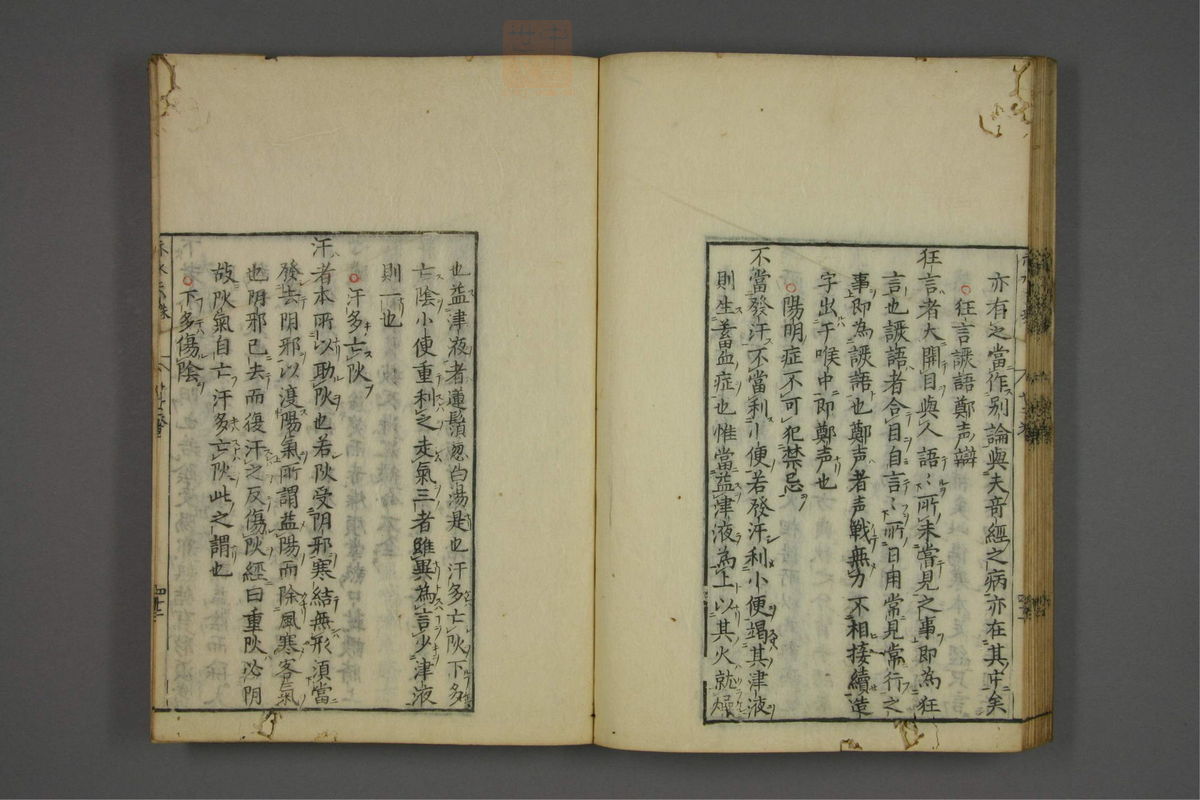 亦有之當作别論與夫竒經之病亦在其中矣
狂言譫語鄭声辯
狂言者大開目與人語〻所未當見之事即為狂
言也譫語者合目自言〻所日用常見常行之
事即為譫語也鄭声者声戦無力不相接續造
字出于喉中即鄭声也
陽明症不可犯禁忌
不當發汗不當利小便若發汗利小便竭其津液
則生蓄血症也惟當益津液為上以其火就燥
也益津液者連鬚葱白湯是也汗多亡阦下多
亡陰小便重利之走氣三者雖異為言少津液
則一也
汗多亡阦
汗者本所以助阦也若阦受阴邪寒結無形須當
發去阴邪以復陽氣所謂益陽而除風寒客氣
也阴邪已去而復汗之反傷阦經曰重阦必阴
故阦氣自亡汗多亡阦此之謂也
下多傷陰